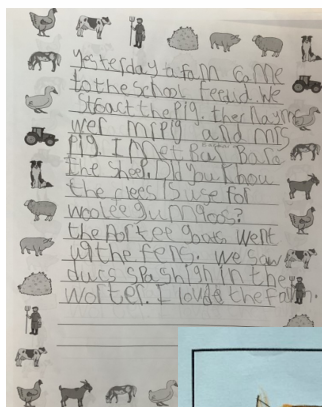 yesterday a fam came
to the school feeud. we
stroact the pig. ther naym
wer mr pig and mrs
pig. I met Baa Baaa
the sheep. Did you know
the flees is use for
woolee gumpoos?
the nortee goats went
uithe fens. we saw
ducs splashign in the
worter. I love the farm.